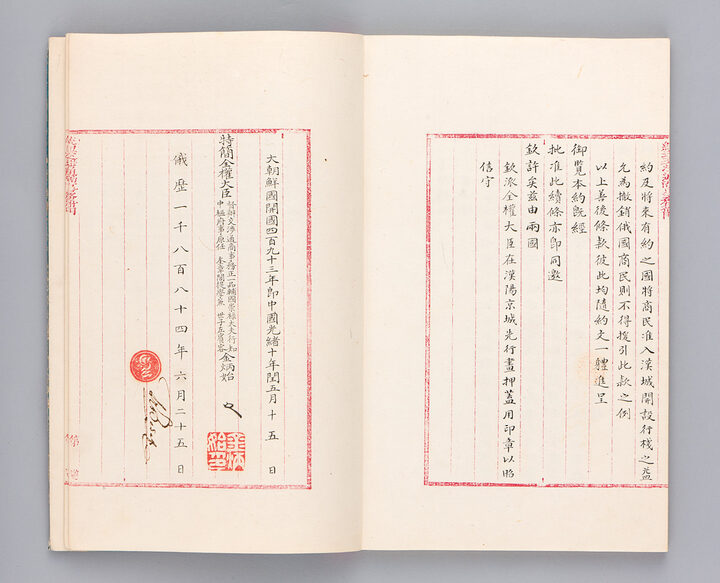 約及將來有約之國將商民准入漢城開設行棧之益
允為撤銷俄國商民則不得援引此款之例
以上善後條款彼此均隨約文一體進呈
御覽本約既經
批准此續條亦即同邀
欽許矣茲由兩國
欽派全權大臣在漢陽京城先行畫押蓋用印章以昭
信守
大朝鮮國開國四百九十三年即中國光緒十年閏五月十五日
特簡全權大臣督辦交涉通商事務正一品輔國崇祿大夫行知
中樞府事原任奎章閣提學兼世子左賓客金炳始
俄歷一千八百八十四年六月二十五日
金炳始印